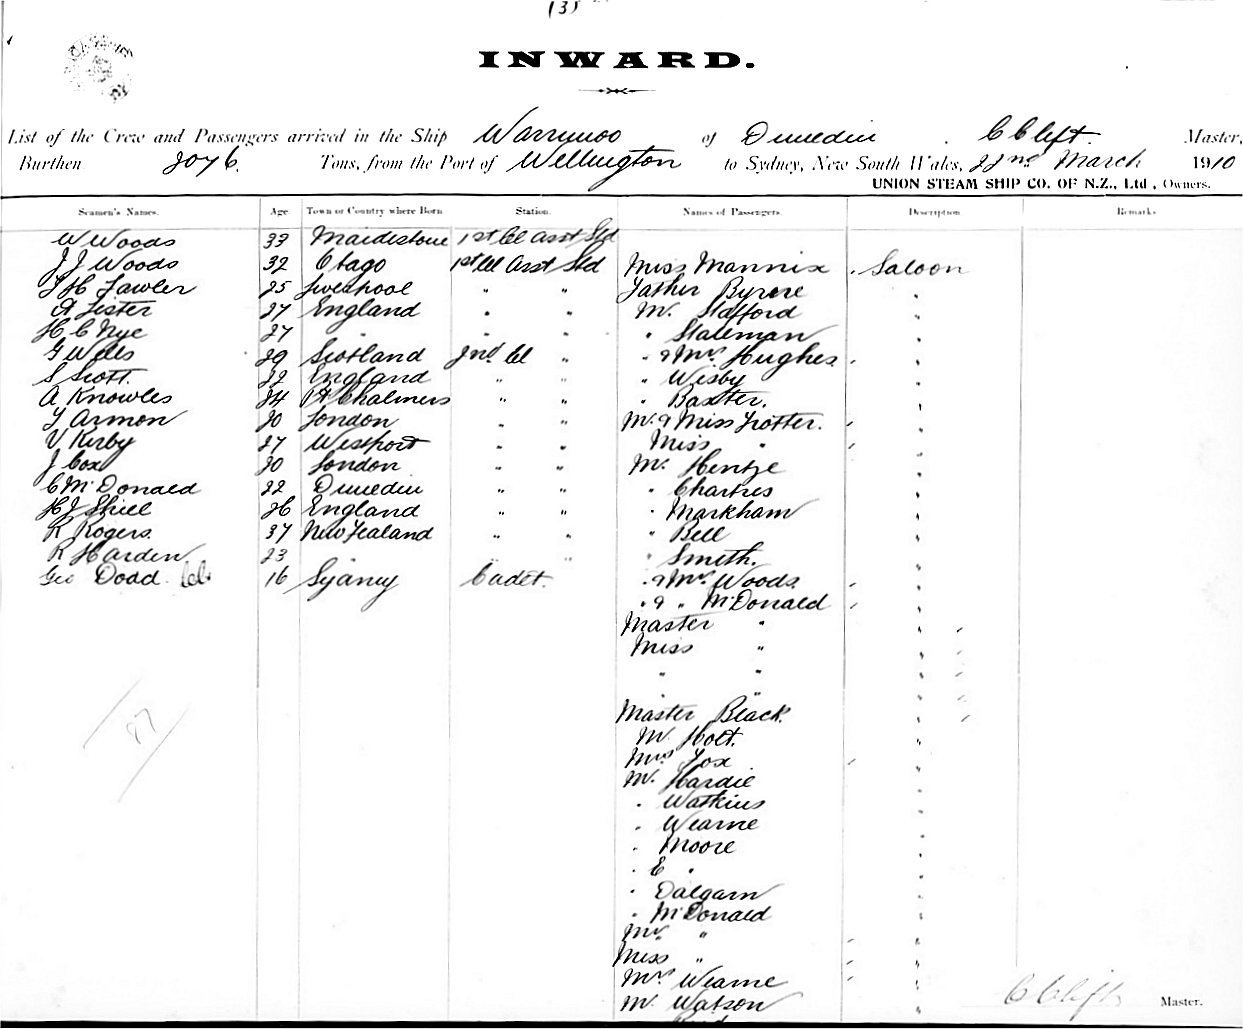 (3)
INWARD.
List of the Crew and Passengers arrived in the Ship Warrimoo of Dunedin . C Clift. Master,
Burthen 2076 Tons, from the Port of Wellington to Sydney, New South Wales, 22nd March 1910
UNION STEAM SHIP CO. OF N.Z., Ltd., Owners.
Seamen's Names. Age Town or Country where Born Station. Names of Passengers. Description Remarks
W Woods 33 Maidstone 1st Cl Asst Std
J J Woods 32 Otago 1st Cl Asst Std Miss Mannix Saloon
F H Fawler 25 Liverpool " " Father Byrne "
A Lister 27 England " " Mr. Stafford "
H C Nye 27 " " " " Stateman "
G Wells 29 Scotland 2nd Cl " " & Mrs Hughes "
S Scott. 22 England " " " Wisby "
A Knowles 24 Pt Chalmers " " " Baxter. "
F Armon 20 London " " Mr. & Miss Trotter. "
V Kirby 27 Westport " " Miss " "
J Cox 20 London " " Mr. Hentze "
C McDonald 22 Dunedin " " " Chartris "
H J Shiel 26 England " " " Markham "
R Rogers. 37 New Zealand " " " Bell "
R Harden 23 " " " " Smith. "
Geo Dodd 16 Sydney Cadet. " & Mrs Woods. "
" & " McDonald "
Master " "
Miss " "
" " "
" " "
Master Black. "
Mr Holt. "
Mrs Fox "
Mr. Hardie "
" Watkins "
" Wearne "
" Moore "
" E " "
" Dalgarn "
" McDonald "
Mrs " "
Miss " "
Mrs Wearne "
Mr. Watson "
87
C Clift Master.